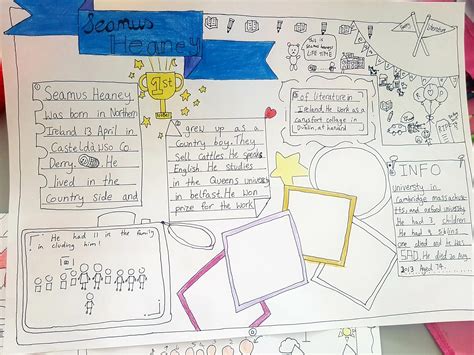 Seamus
Heaney
this is
seamus heaneys
LIFE TIME
1st
Seamus Heaney
Was born in Northern
Ireland 13 April in
Casteldawso Co
Derry. He
lived in the
Country side and
grew up as a
Country boy. They
Sell Cattles. He speaks
English. He studies
in the Queens university
in belfast. He won
prize for the work
of Literature in
Ireland. He work as a
Carysfort college in
Dublin, at harvard
INFO
University in
Cambridge massachuse-
tts and oxford university
He had 3 children
He had 9 siblins
one died and He was
SAD. He died 30 Aug
2013 Aged 74.
He had 11 in the family
in cluding him!